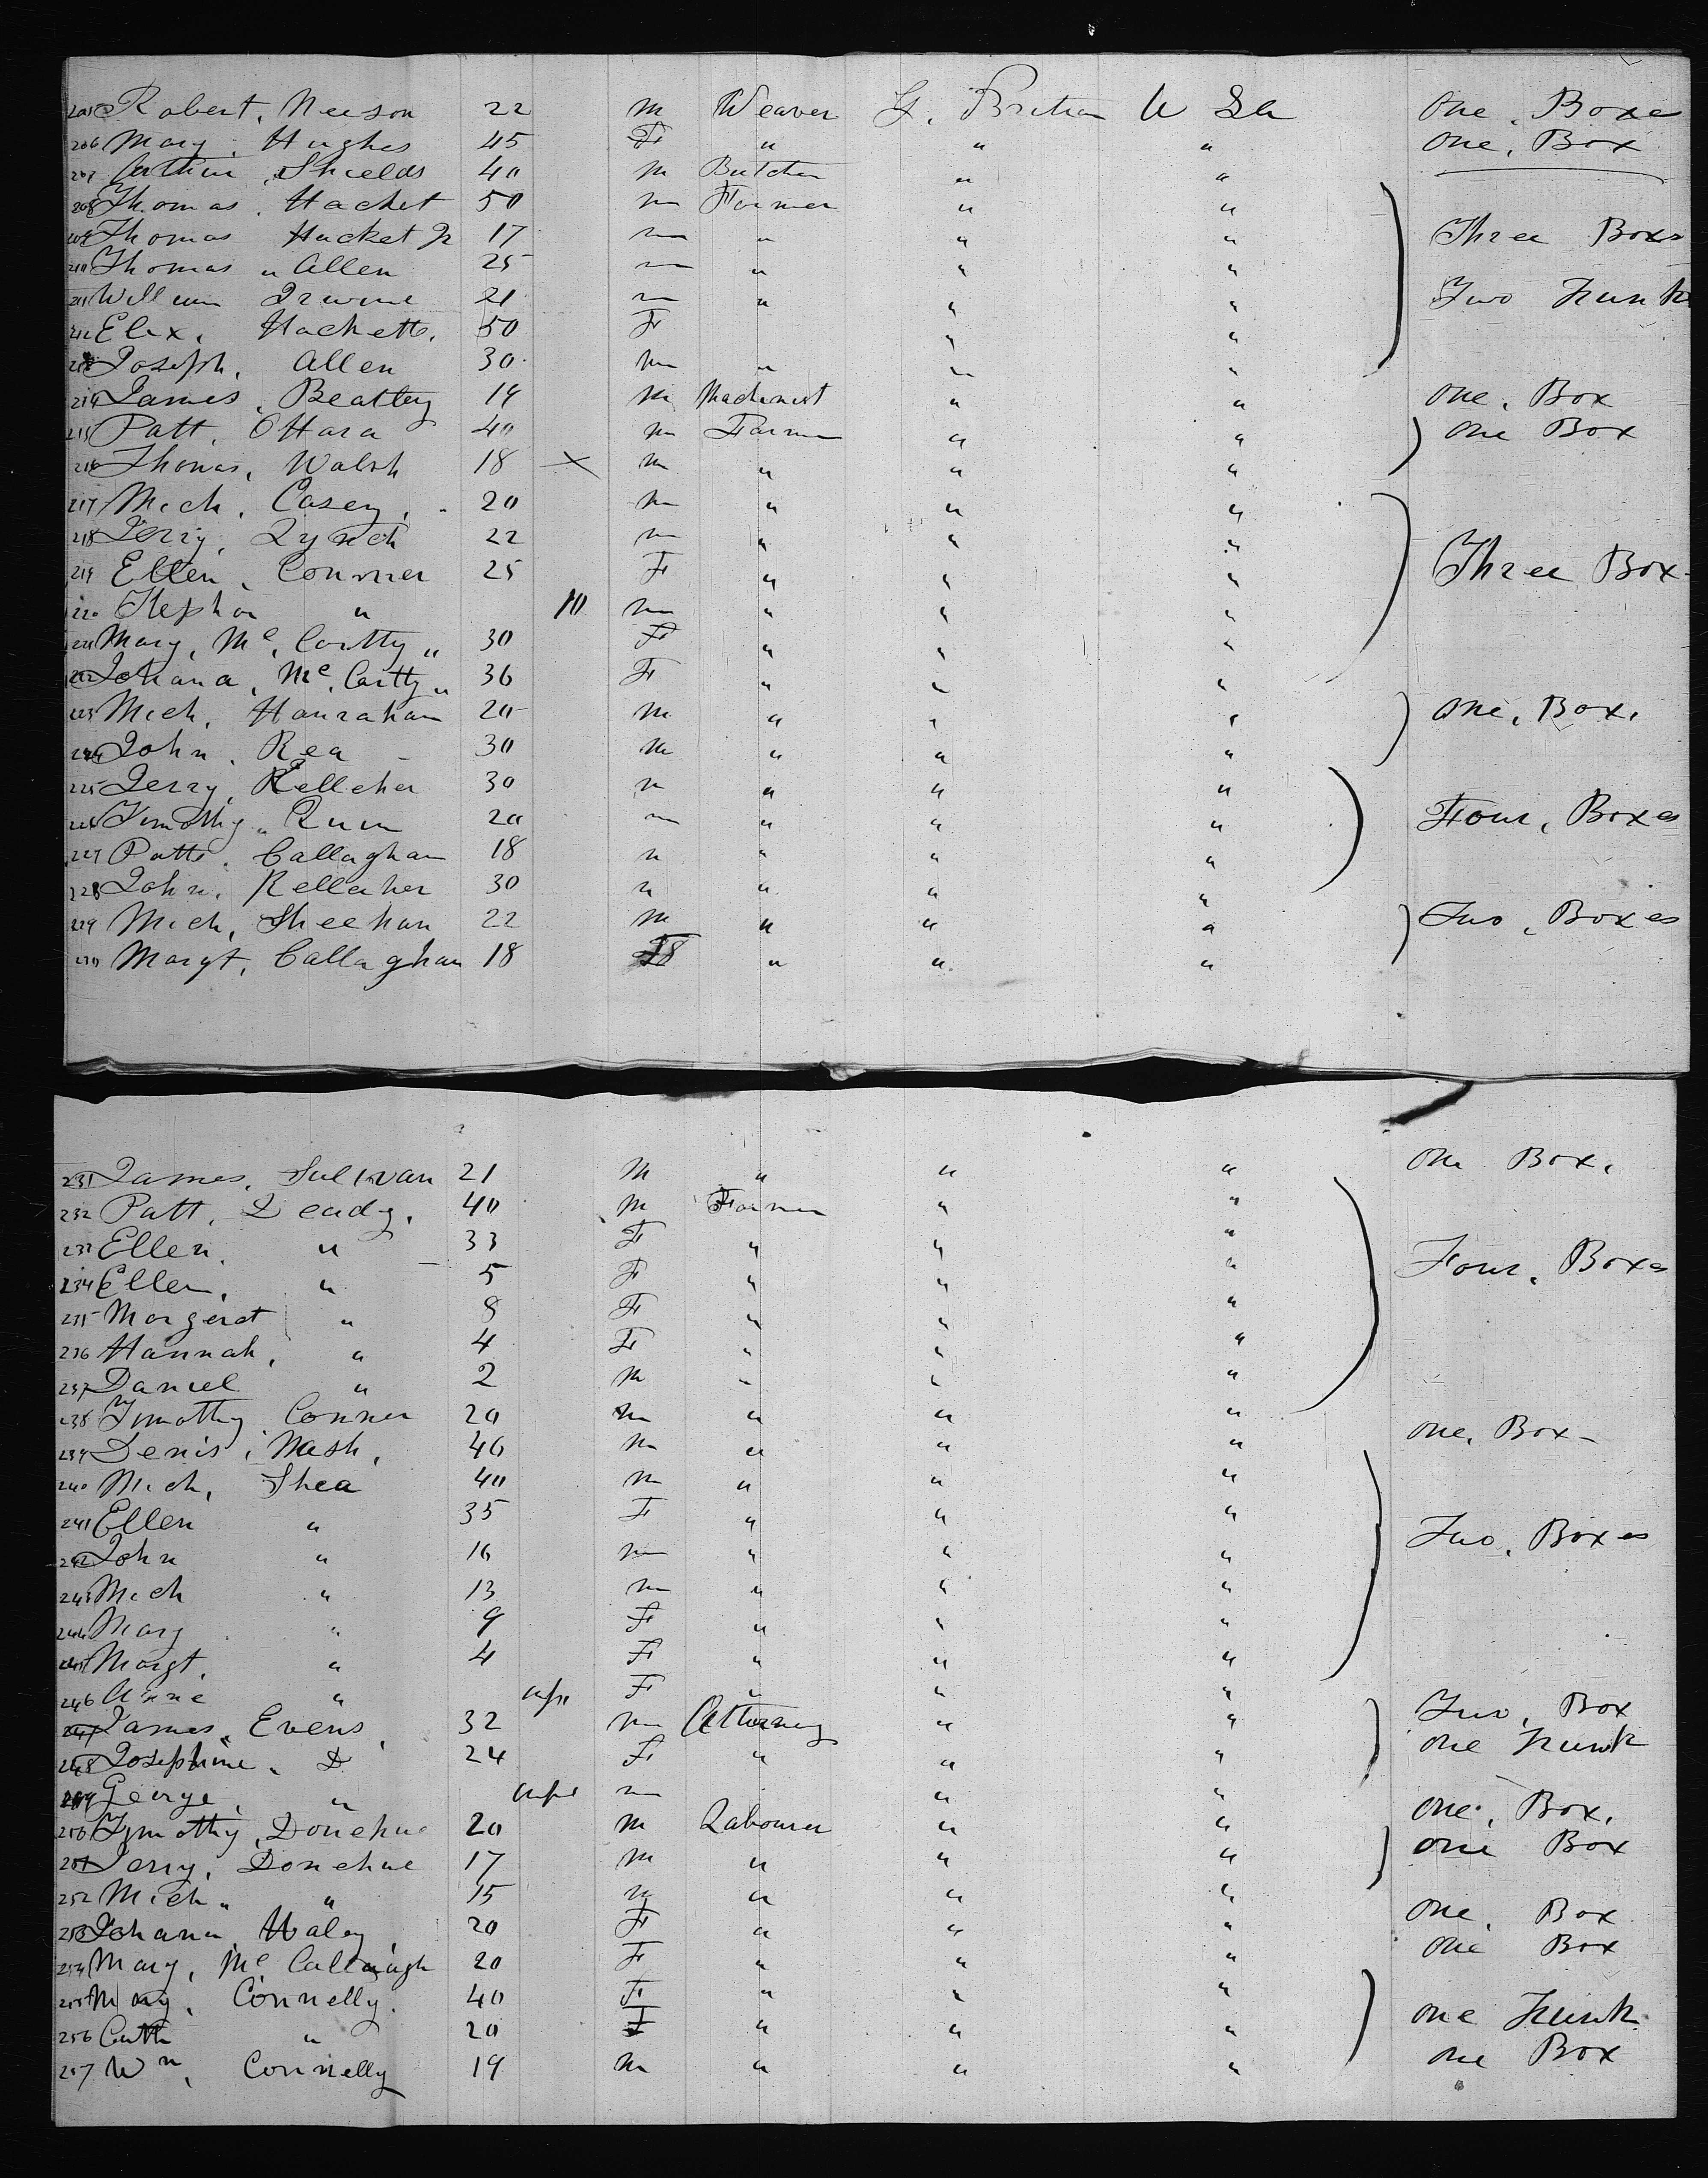 205 Robert, Neeson 22 M Weaver G. Britian U Sta One, Boxes
206 Mary, Hughes 45 F " " " One, Box
207 Arthur, Shields 40 M Butcher " "
208 Thomas, Hacket 50 M Farmer " "
209 Thomas Hacket Jr 17 M " " " Three Boxes
210 Thomas " Allen 25 M " " "
211 William Irwine 21 M " " " Two Trunk
212 Elix, Hacketts, 50 F " "
213 Joseph, Allen 30 M " " "
214 James, Beattey 19 M Machinest " " One, Box
215 Patt, OHara 40 M Farmer " " One Box
216 Thomas, Walsh 18 X M " " "
217 Mich, Casey, 20 M " " "
218 Jerry, Lynch 22 M " " "
219 Ellen, Conner 25 F " " " Three Box
220 Stephen " 10 M " " "
221 Mary, Mc, Cartty " 30 F " " "
222 Johana, Mc, Cartty " 36 F " " "
223 Mich, Hanrahan 20 M " " " One, Box,
224 John, Rea 30 M " " "
225 Jerry, Kelleher 30 M " " "
226 Timothy " Quin 20 M " " " Four, Boxes
227 Patt, Callaghan 18 M " " "
228 John, Kellaher 30 M " " "
229 Mich, Sheehan 22 M " " " Two, Boxes
230 Margt, Callaghan 18 F " " "
231 James, Sullivan 21 M " " " One Box,
232 Patt, Leady, 40 M Farmer " "
233 Ellen, " 33 F " " "
234 Ellen, " 5 F " " " Four, Boxes
235 Margerat " 8 F " " "
236 Hannah, " 4 F " " "
237 Daniel " 2 M " " "
238 Tymothy Conner 20 M " " "
239 Denis, Nash, 46 M " " " One, Box
240 Mich, Shea 40 M " " "
241 Ellen " 35 F " " "
242 John " 16 M " " " Two, Boxes
243 Mich " 13 M " " "
244 Mary " 9 F " " "
245 Margt, " 4 F " " "
246 Anne " inft F " " "
247 James, Evens, 32 M Attorney " " Two, Box
248 Josephine, D 24 F " " " One Trunk
249 George, " inft M " "
250 Tymothy, Donehue 20 M Labourer " " One, Box,
251 Jerry, Donehue 17 M " " " One Box
252 Mich " " 15 M " " "
253 Johana, Haley, 20 F " " " One, Box
254 Mary, Mc Callaugh 20 F " " " One Box
255 Mary, Connelly, 40 F " " "
256 Cath " 20 F " " " One Trunk
257 Wm, Connelly 19 M " " " One Box